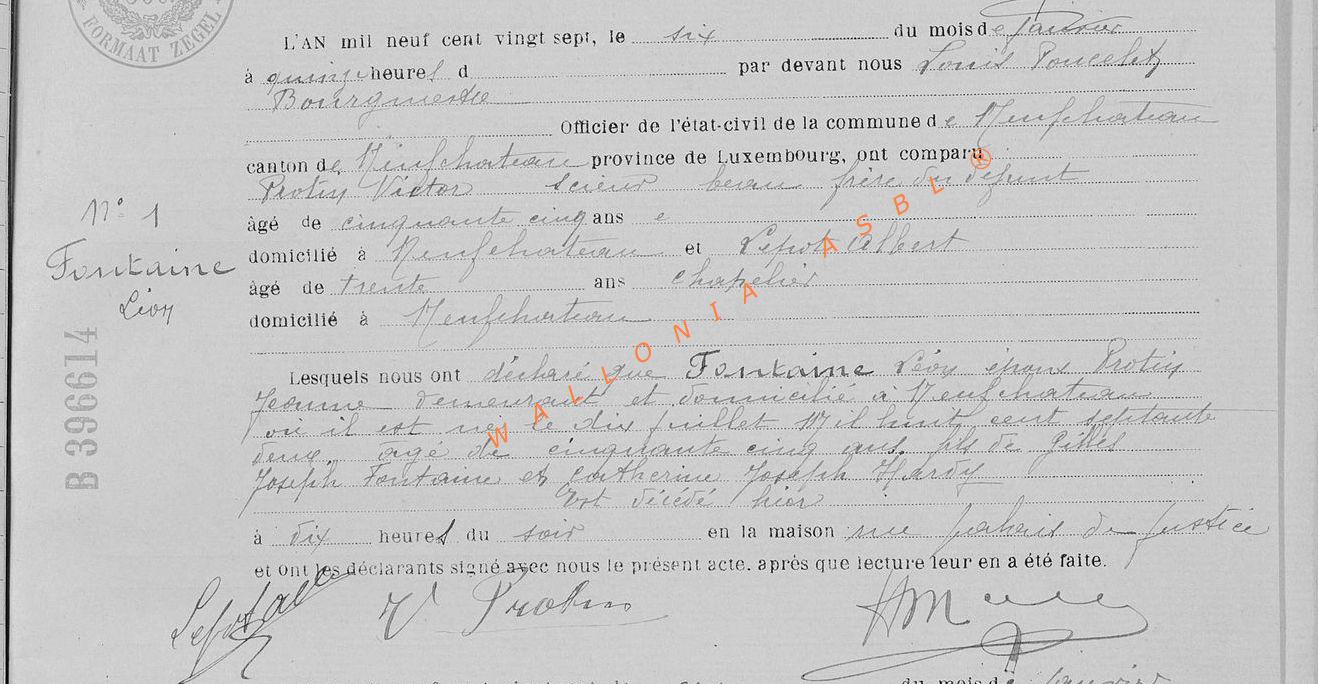 FORMAAT ZEGEL
L'AN mil neuf cent vingt sept, le six du mois de Janvier
à quinze heures d par devant nous Louis Poncelet
Bourgmestre
Officier de l'état-civil de la commune de Neufchateau
canton de Neufchateau province de Luxembourg, ont comparu
Protin Victor scieur beau frère du défunt
âgé de cinquante cinq ans e
domicilié à Neufchateau et Lepot Albert
âgé de trente ans chapelier
domicilié à Neufchateau
N° 1
Fontaine
Léon
B 396614
Lesquels nous ont déclaré que Fontaine Léon époux Protin
Jeanne demeurant et domicilié à Neufchateau
ou il est né le dix juillet Mil huit cent septante
deux. agé de cinquante cinq ans. fils de Gilles
Joseph Fontaine et Catherine Joseph Hardy
Est décédé hier
à dix heures du soir en la maison rue palais de justice
et ont les déclarants signé avec nous le présent acte. après que lecture leur en a été faite.
V Protin
du mois de Janvier
WALLONIA ASBL ®